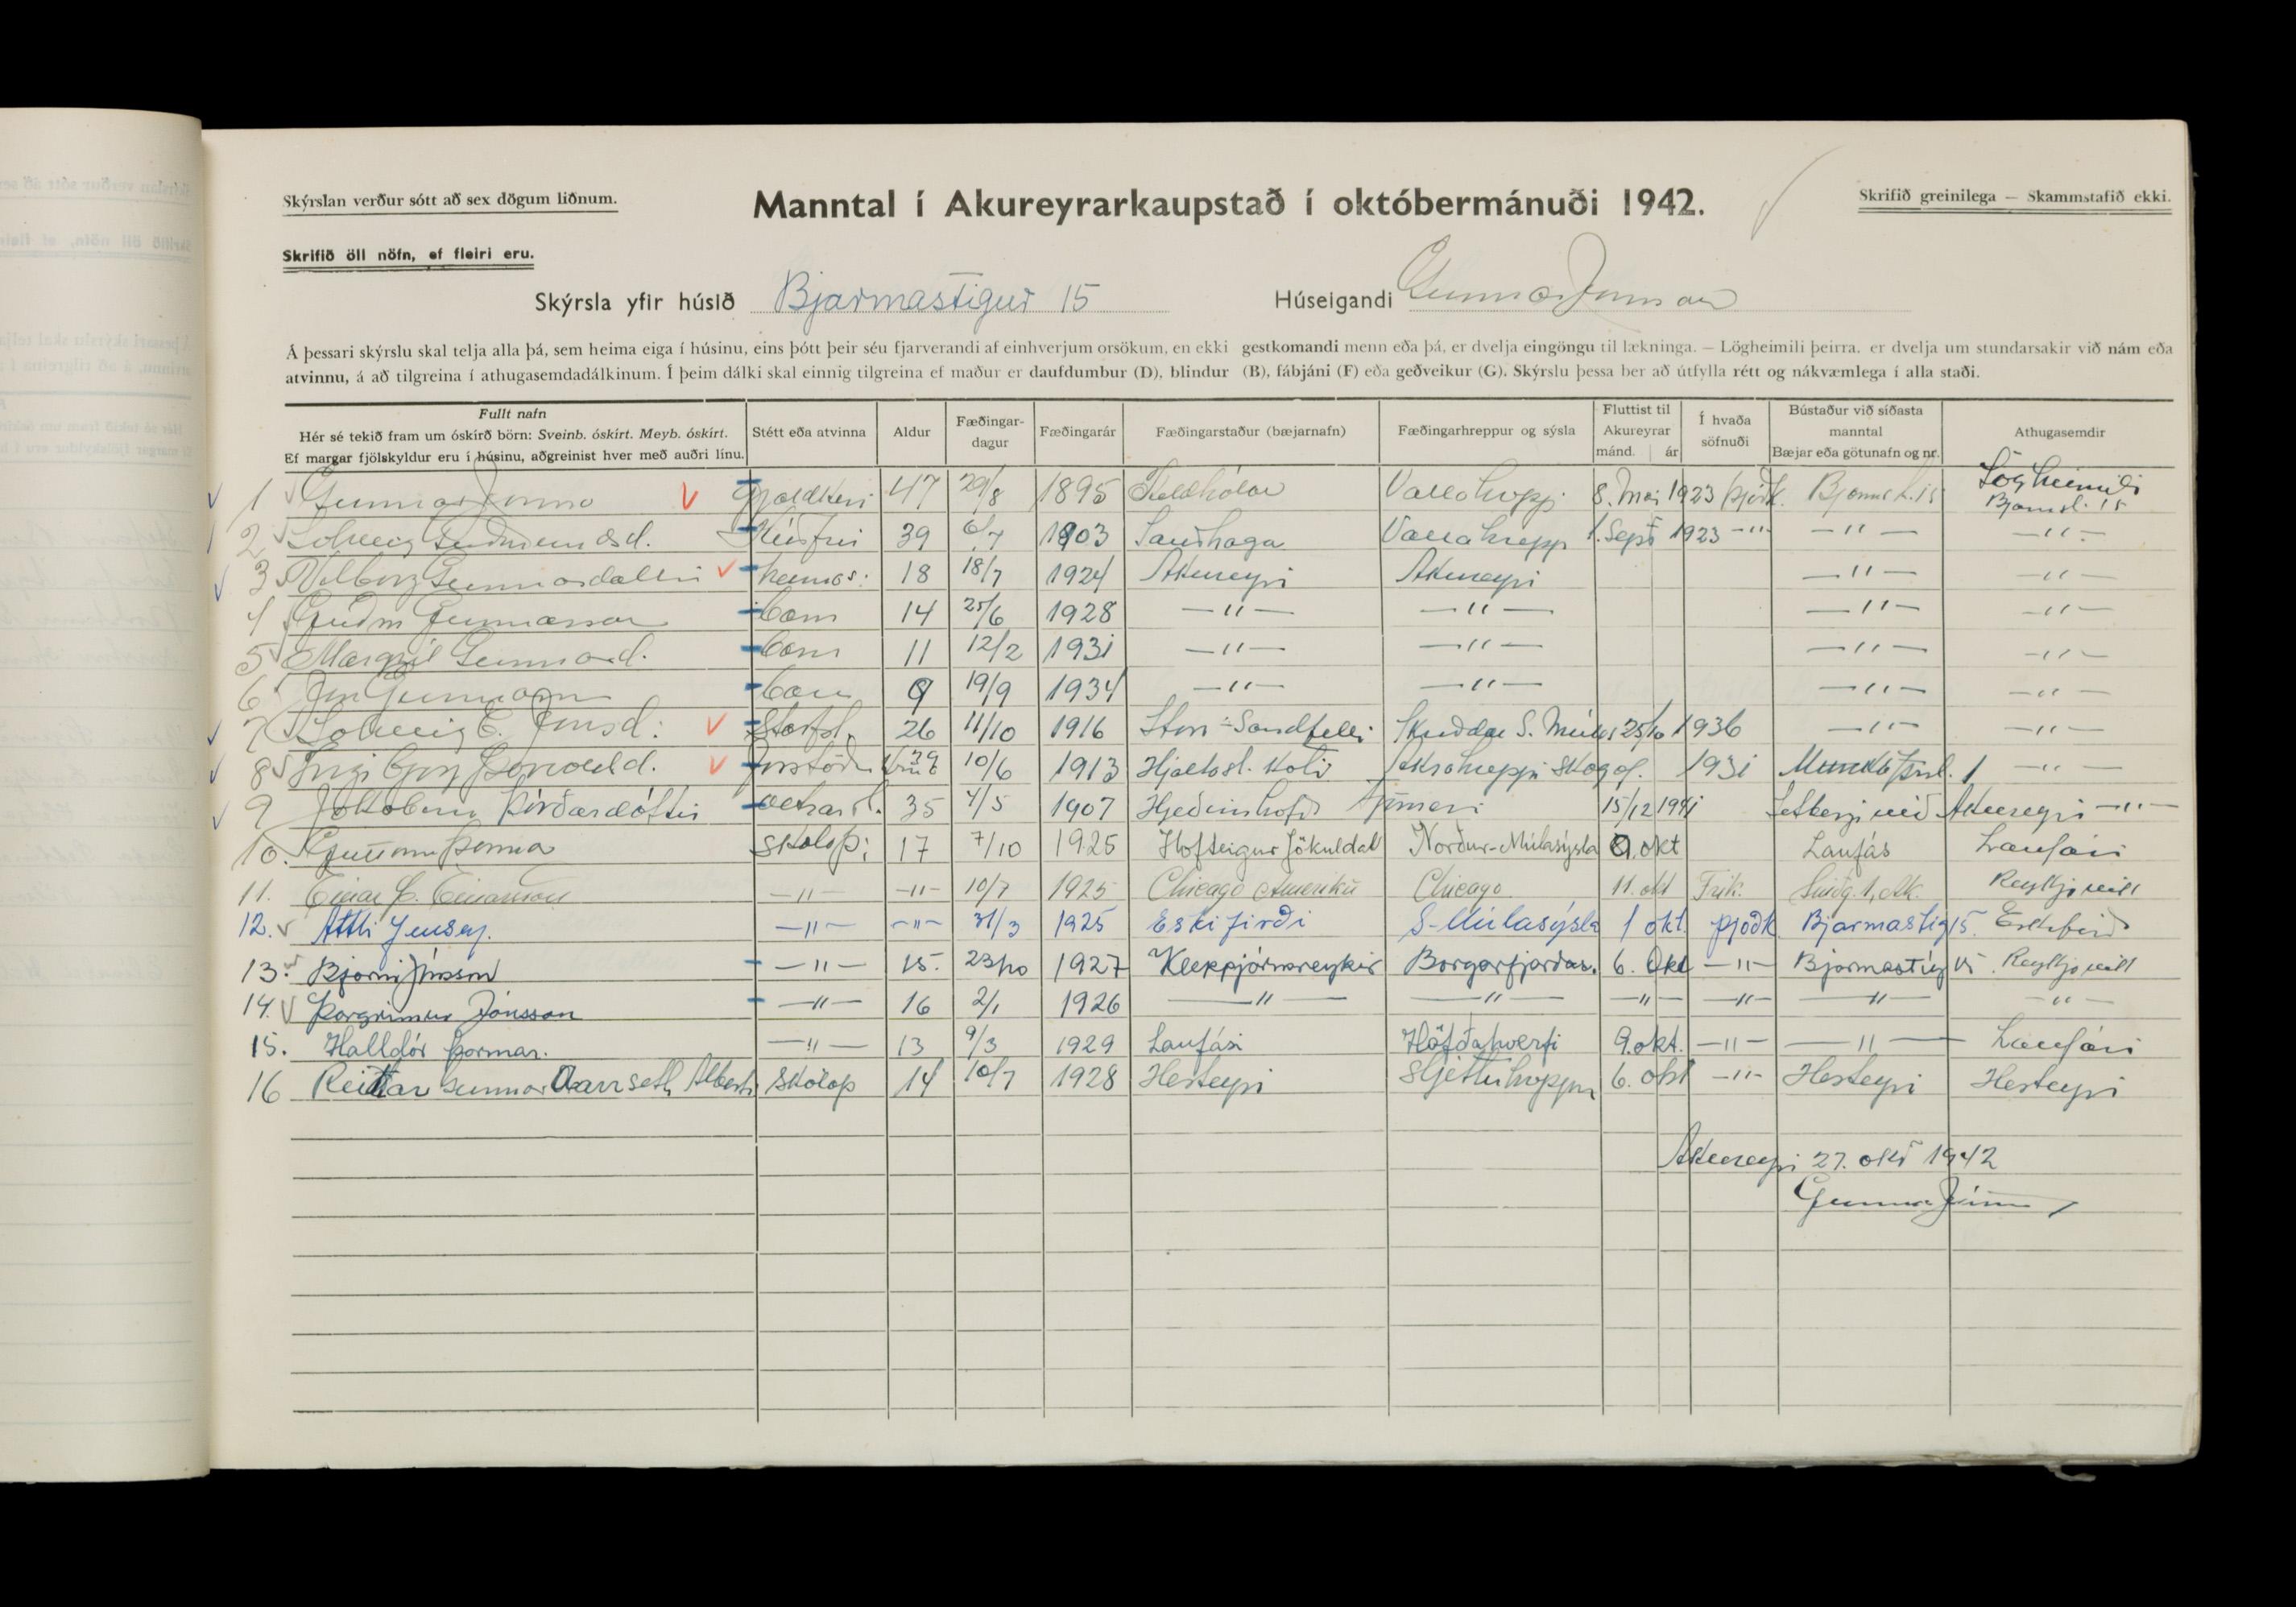 Skýrslan verður sótt að sex dögum liðnum.
Manntal í Akureyrarkaupstað í októbermánuði 1942.
Skrifið greinilega — Skammstafið ekki.
Skrifið öll nöfn, ef fleiri eru.
Skýrsla yfir húsið Bjarmastigur 15 Húseigandi Gunnar Jónsson
Á þessari skýrslu skal telja alla þá, sem heima eiga í húsinu, eins þótt þeir séu fjarverandi af einhverjum orsökum, en ekki gestkomandi menn eða þá, er dvelja eingöngu til lækninga. — Lögheimili þeirra, er dvelja um stundarsakir við nám eða
atvinnu, á að tilgreina í athugasemdadálkinum. Í þeim dálki skal einnig tilgreina ef maður er daufdumbur (D), blindur (B), fábjáni (F) eða geðveikur (G). Skýrslu þessa ber að útfylla rétt og nákvæmlega í alla staði.
Fullt nafn
Hér sé tekið fram um óskírð börn: Sveinb. óskírt. Meyb. óskírt.
Ef margar fjölskyldur eru í húsinu, aðgreinist hver með auðri línu.
Stétt eða atvinna
Aldur
Fæðingar-
dagur
Fæðingarár
Fæðingarstaður (bæjarnafn)
Fæðingarhreppur og sýsla
Fluttist til
Akureyrar
mánd. ár
Í hvaða
söfnuði
Bústaður við síðasta
manntal
Bæjar eða götunafn og nr.
Athugasemdir
1 Gunnar Jónsson Gjaldkeri 47 29/8 1895 Vallahreppi 8. Maí 1923 þjóðk. Lögheimili
2 Sólveig Guðmundsd. Húsfrú 39 6/7 1903 Sauðhaga Vallahrepp 1. Sept 1923 —"— —"— —"—
3 Vilborg Gunnarsdóttir heimas: 18 18/7 1924 Akureyri Akureyri —"— —"—
4 Guðm Gunnarsson barn 14 25/6 1928 —"— —"— —"— —"—
5 Margrét Gunnarsd. barn 11 12/2 1931 —"— —"— —"— —"—
6 Jón Gunnarsson barn 19/9 1934 —"— —"— —"— —"—
7 Sólveig E. Jónsd: 26 11/10 1916 Stóri-Sandfelli 1936 —"— —"—
8 Ingibjörg 10/6 1913 1931 —"—
9 Jakobína Þórðardóttir 35 4/5 1907 15/12 1941 Akureyri —"—
10. skólap: 17 7/10 1925 Hofteigur Jökuldal Norður-Múlasýsla 9. okt Laufás Laufási
11. Einar Einarsson —"— —"— 10/7 1925 Chicago Ameríku Chicago 11. okt Frík. Reykjavík
12. Attli Jensen. —"— —"— 31/3 1925 Eskifirði S-Múlasýsla 1 okt. þjóðk Bjarmastíg 15.
13. Bjarni Jónsson —"— 15. 23/10 1927 Kleppjárnsreykir Borgarfjarðas. 6. Okt —"— Bjarmastíg 15 Reykjavík
14. Þorgrímur Jónsson —"— 16 2/1 1926 —"— —"— —"— —"— —"— —"—
15. Halldór Þormar. —"— 13 9/3 1929 Laufási Höfðahverfi 9. okt. —"— —"— Laufási
16 Reidar Gunnar skólap 14 10/7 1928 Hesteyri 6. okt —"— Hesteyri Hesteyri
Akureyri 27. okt 1942
Gunnar Jónsson